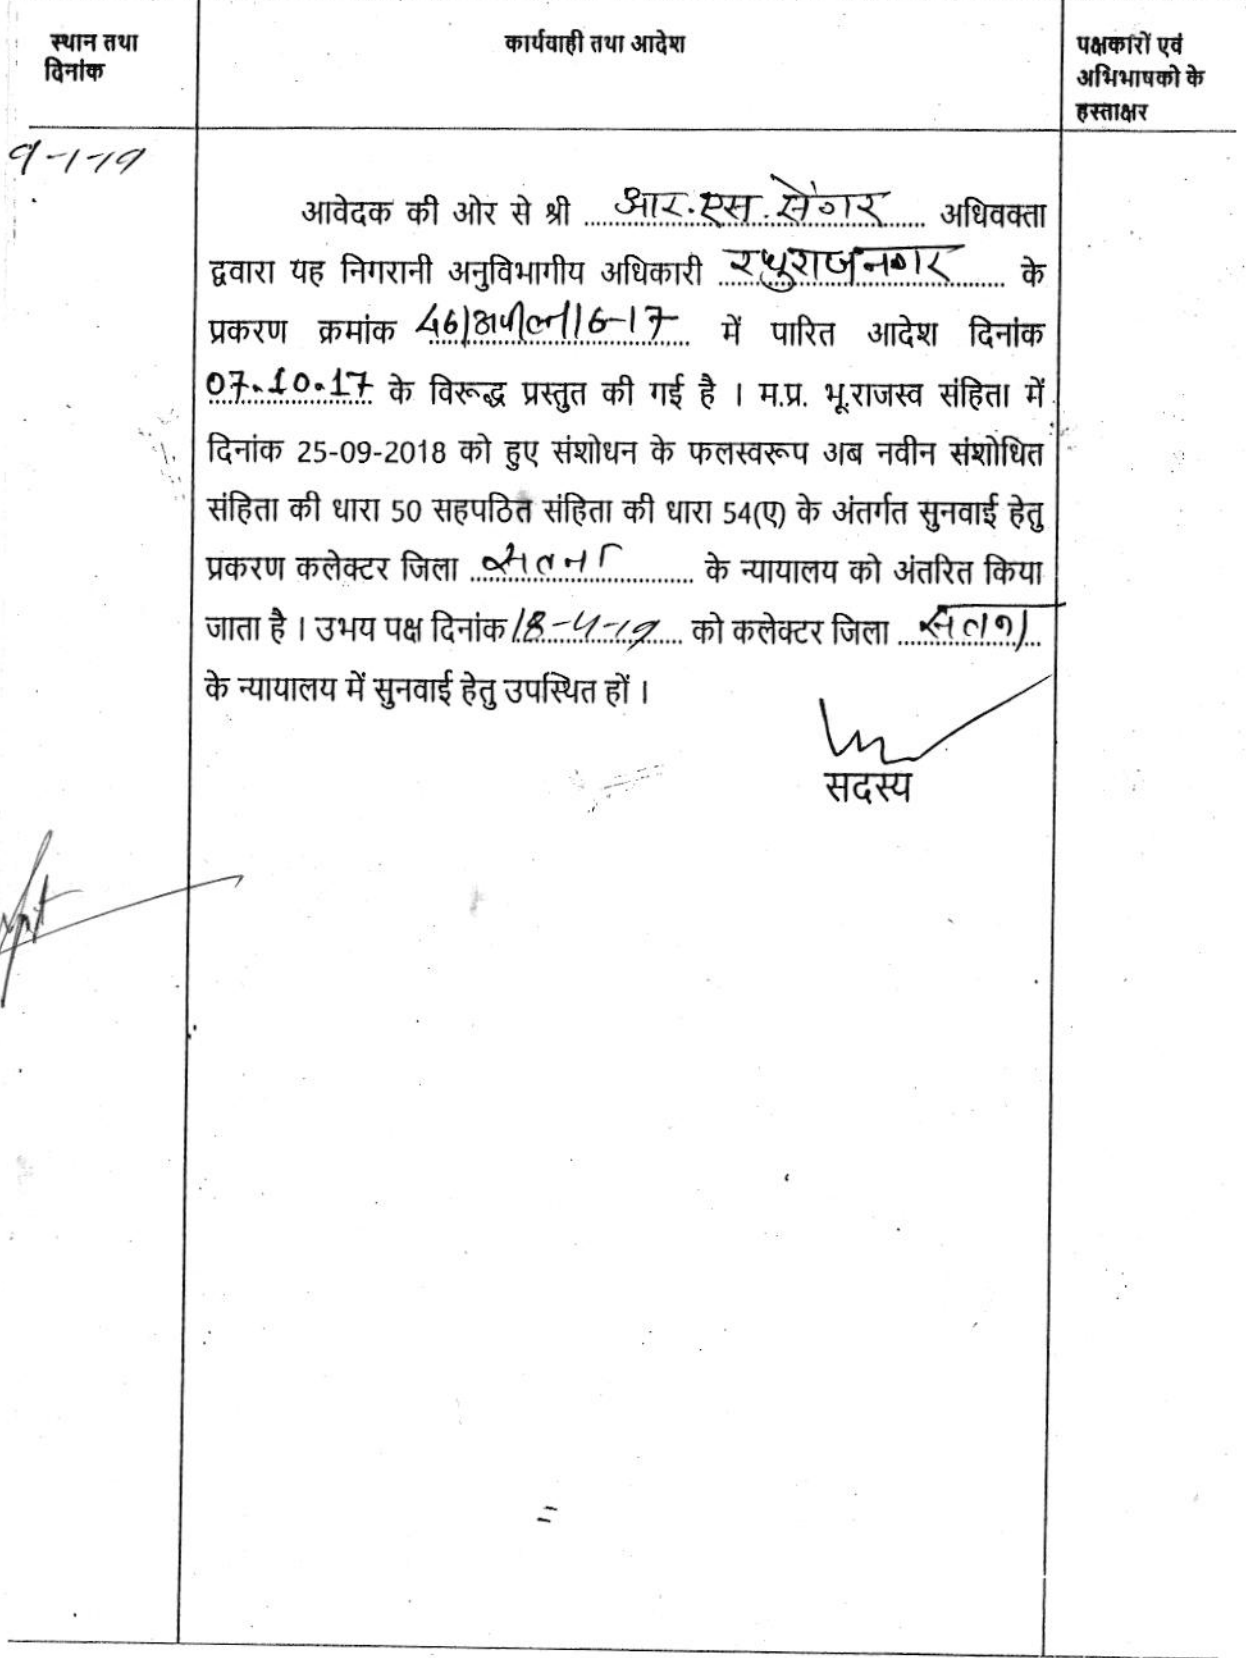 स्थान तथा
दिनांक
कार्यवाही तथा आदेश
पक्षकारों एवं
अभिभाषको के
हस्ताक्षर
9-1-19
आवेदक की ओर से श्री आर.एस.सेंगर अधिवक्ता
द्वारा यह निगरानी अनुविभागीय अधिकारी रघुराजनगर के
प्रकरण क्रमांक 46/अपील/16-17 में पारित आदेश दिनांक
07.10.17 के विरूद्ध प्रस्तुत की गई है । म.प्र. भू.राजस्व संहिता में
दिनांक 25-09-2018 को हुए संशोधन के फलस्वरूप अब नवीन संशोधित
संहिता की धारा 50 सहपठित संहिता की धारा 54(ए) के अंतर्गत सुनवाई हेतु
प्रकरण कलेक्टर जिला सतना के न्यायालय को अंतरित किया
जाता है । उभय पक्ष दिनांक 18-4-19 को कलेक्टर जिला सतना
के न्यायालय में सुनवाई हेतु उपस्थित हों ।
सदस्य